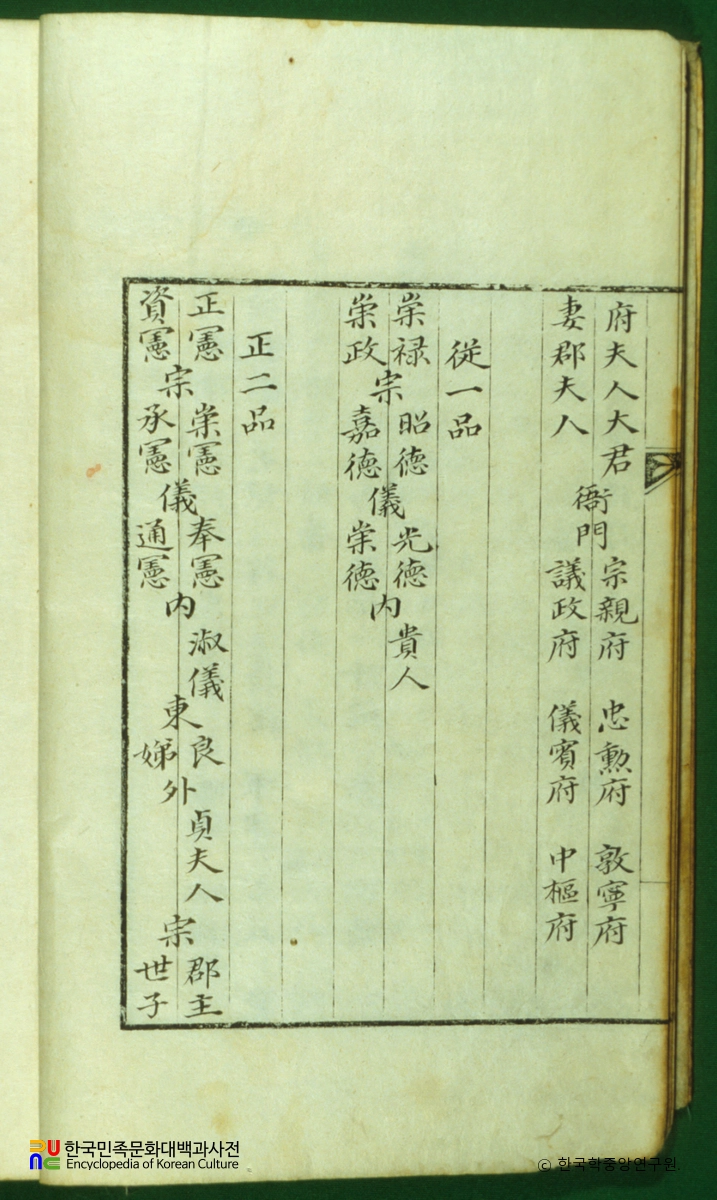 府夫人大君
妻郡夫人
衙門
宗親府 忠勲府 敦寧府
議政府 儀賓府 中樞府
從一品
崇禄
崇政
宗
昭德
嘉德
儀
光德
崇德
内
貴人
正二品
正憲
資憲
宗
崇憲
承憲
儀
奉憲
通憲
内
淑儀
東
良
娣
外
貞夫人
宗
郡主
世子
한국민족문화대백과사전
Encyclopedia of Korean Culture
© 한국학중앙연구원